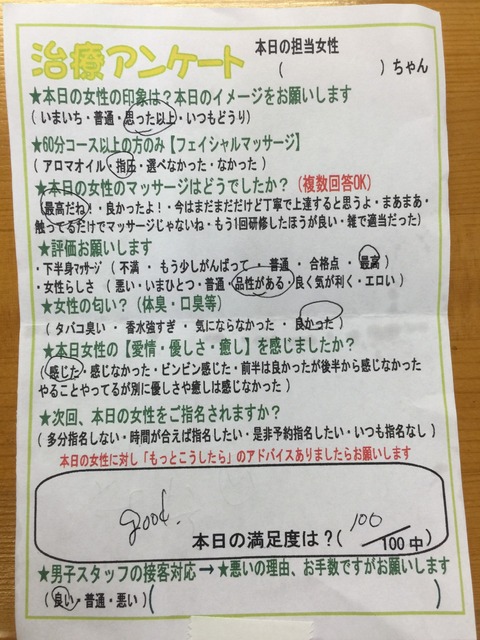 治療アンケート
本日の担当女性
( )ちゃん
★本日の女性の印象は?本日のイメージをお願いします
(いまいち・普通・思った以上・いつもどうり)
★60分コース以上の方のみ【フェイシャルマッサージ】
(アロマオイル・指圧・選べなかった・なかった)
★本日の女性のマッサージはどうでしたか?(複数回答OK)
(最高だね!・良かったよ!・今はまだまだだけど丁寧で上達すると思うよ・まあまあ・
触ってるだけでマッサージじゃないね・もう1回研修したほうが良い・雑で適当だった)
★評価お願いします
・下半身マッサージ(不満・もう少しがんばって・普通・合格点・最高)
・女性らしさ(悪い・いまひとつ・普通・品性がある・良く気が利く・エロい)
★女性の匂い?(体臭・口臭等)
(タバコ臭い・香水強すぎ・気にならなかった・良かった)
★本日女性の【愛情・優しさ・癒し】を感じましたか?
(感じた・感じなかった・ビンビン感じた・前半は良かったが後半から感じなかった
やることやってるが別に優しさや癒しは感じなかった)
★次回、本日の女性をご指名されますか?
(多分指名しない・時間が合えば指名したい・是非予約指名したい・いつも指名なし)
本日の女性に対し「もっとこうしたら」のアドバイスありましたらお願いします
good.
本日の満足度は?(100/100中)
★男子スタッフの接客対応→★悪いの理由、お手数ですがお願いします
(良い・普通・悪い)( )